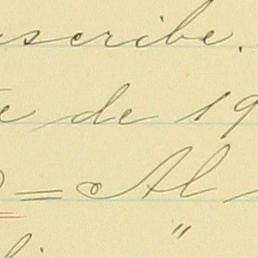 scribe.
de 19
= Al
"